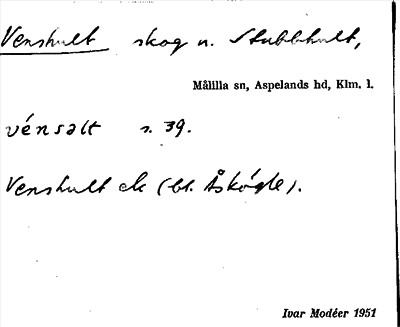 Venshult skog u. Stubbhult,
Målilla sn, Aspelands hd, Klm. l.
vénsalt s. 39.
Venshult ek (bl. Åskógle).
Ivar Modéer 1951